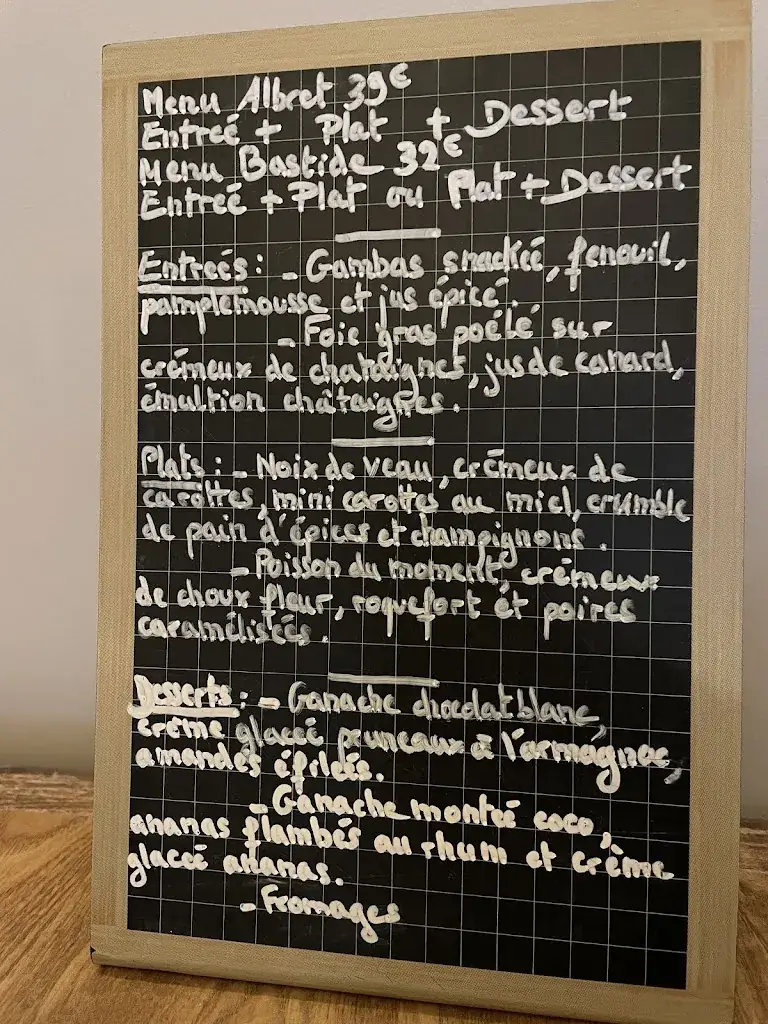 Menu Albret 39€
Entreé + Plat + Dessert
Menu Bastide 32€
Entreé + Plat ou Plat + Dessert
Entreés : - Gambas snackéé, fenouil,
pamplemousse et jus épicé.
- Foie gras poêlé sur
crémeux de chataignes, jus de canard,
émultion châtaignes.
Plats : - Noix de veau, crémeux de
carottes, mini carottes au miel, crumble
de pain d'épices et champignons.
- Poisson du moment, crémeux
de choux fleur, roquefort et poires
caramélisées.
Desserts : - Ganache chocolat blanc,
crème glacéé pruneaux à l'armagnac,
amandes éfileés.
- Ganache monteé coco,
ananas flambés au rhum et crème
glaceé ananas.
- Fromages